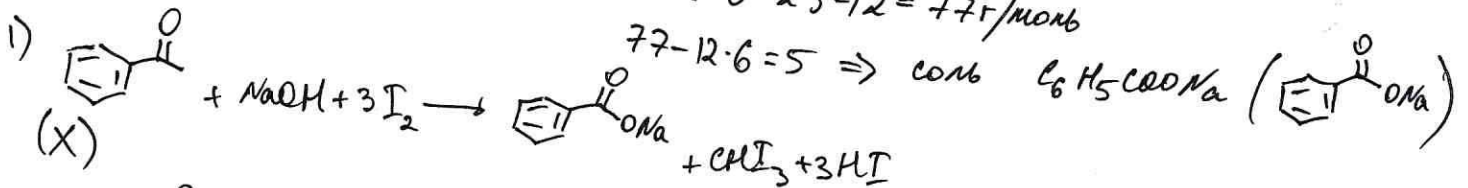 = 77 г/моль
77-12·6=5 ⇒ соль C₆H₅COONa ( O ONa )
1) O + NaOH + 3I₂ → O ONa
(X) + CHI₃ + 3HI